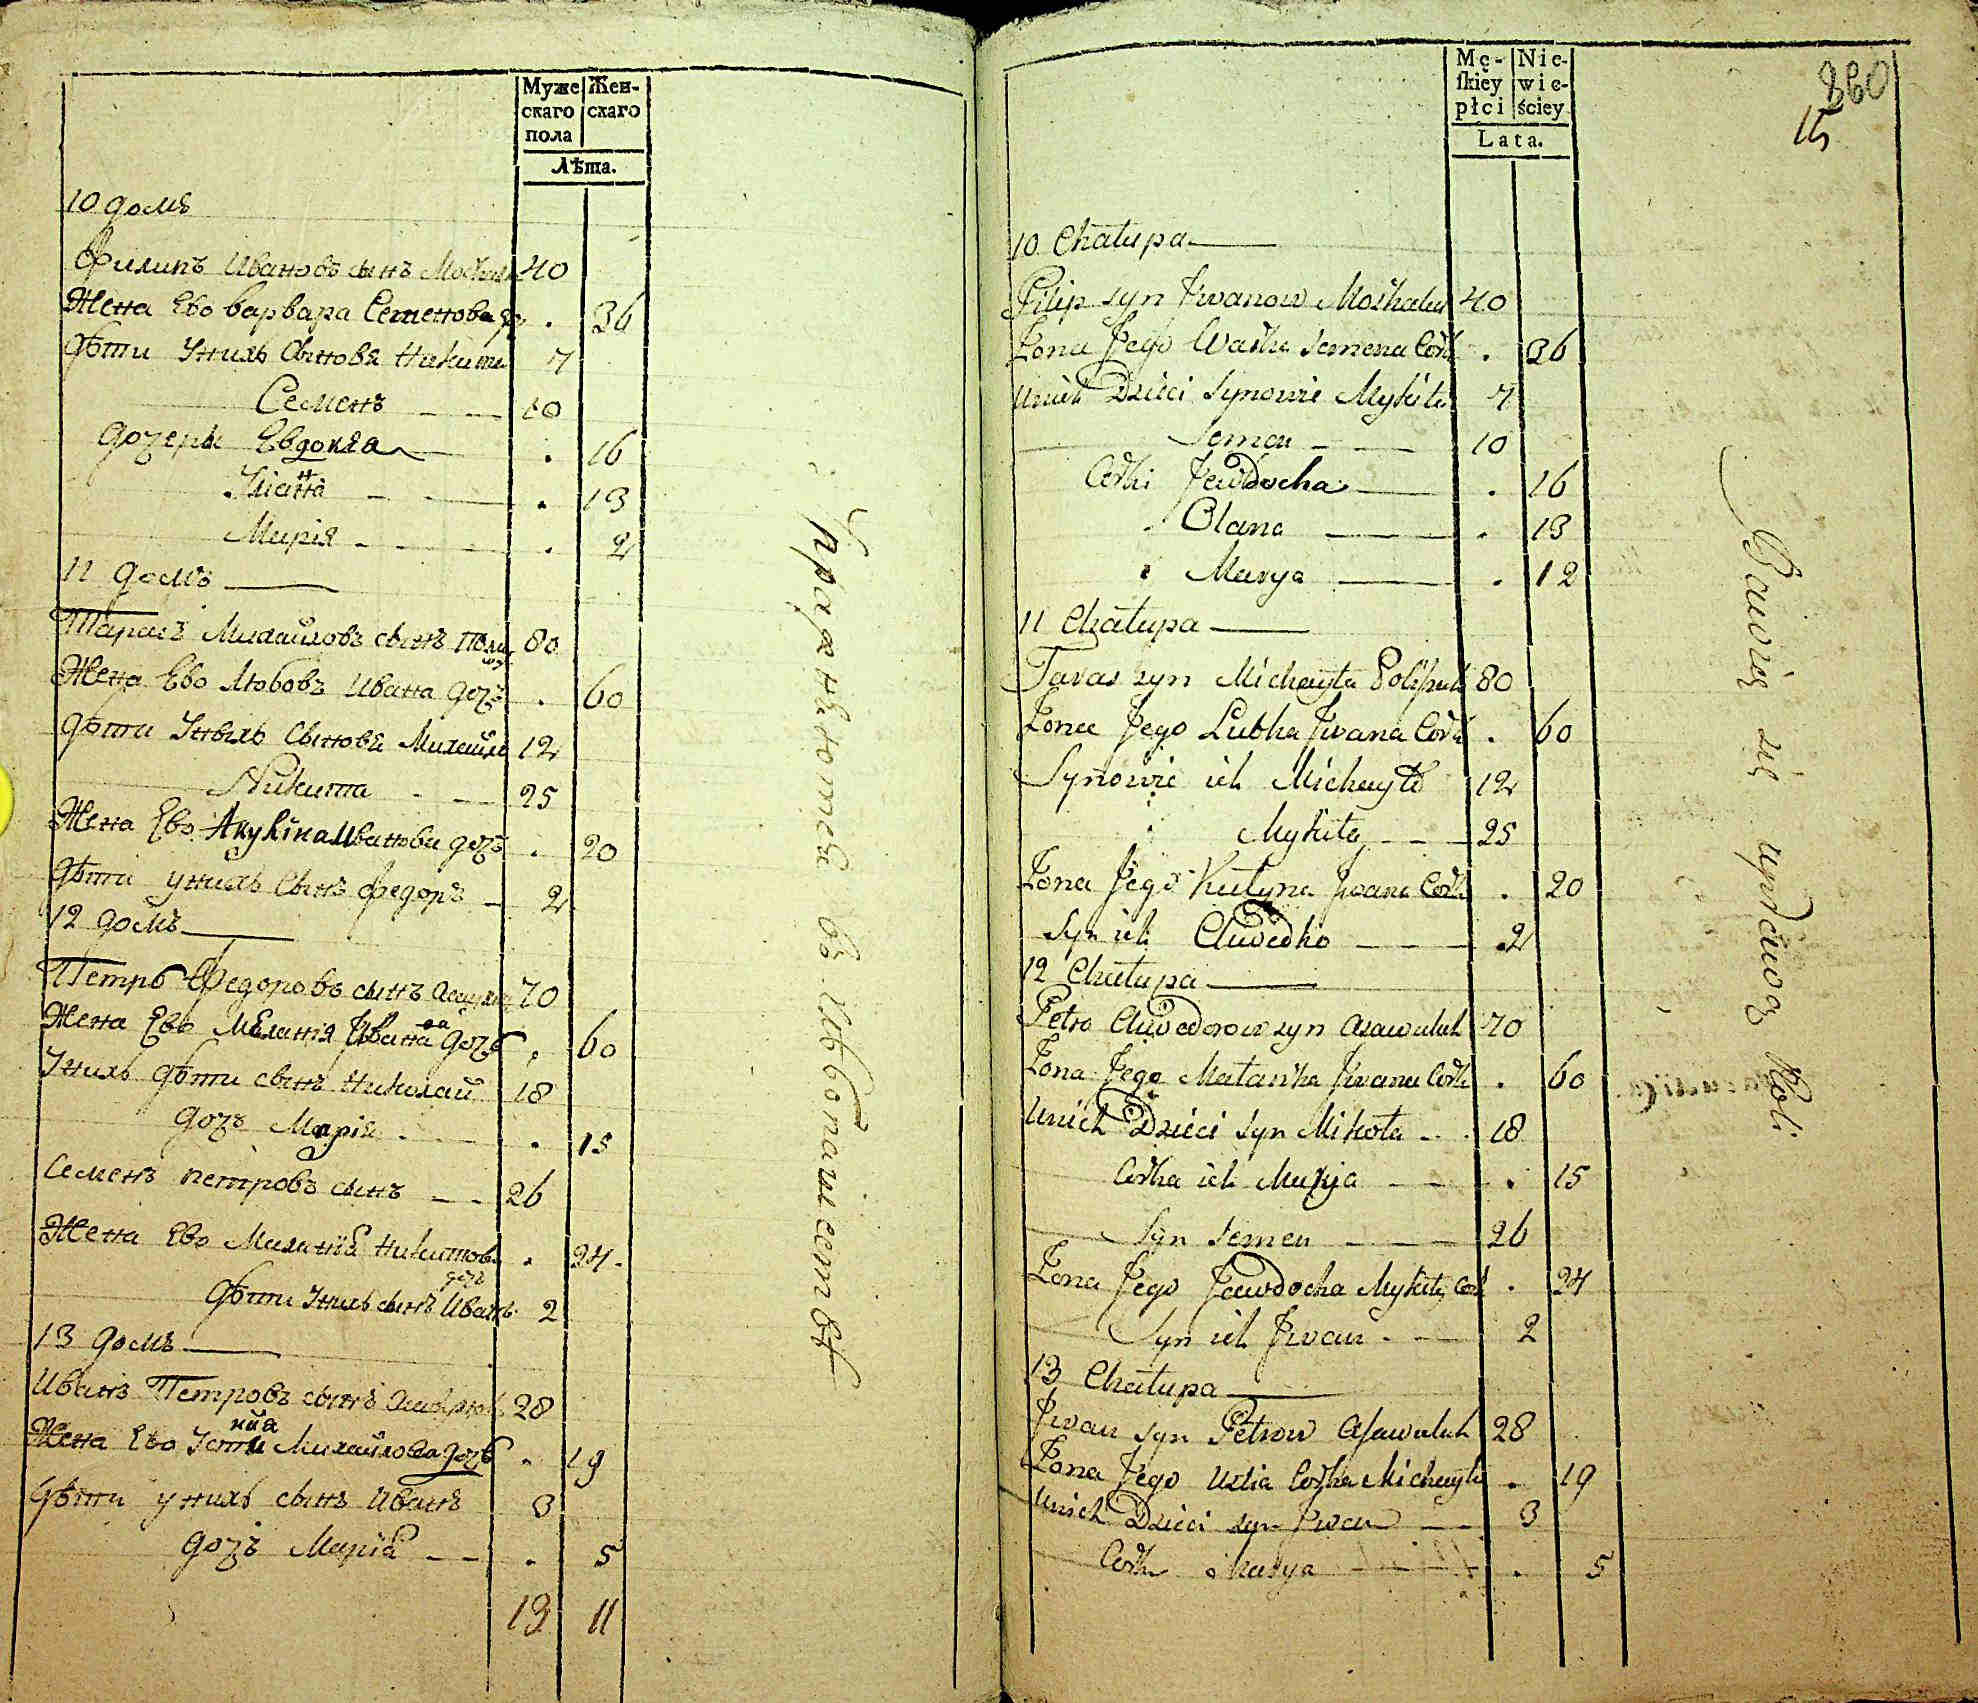 Муже скаго пола
Жен- скаго
Лѣта.
10 домъ
Филипъ Ивановъ сынъ 40
Жена Ево варвара Семенова 36
Дѣти Унихъ Сыновя Никита 7
Семенъ 10
дочеры Евдокѣа 16
Уліана 13
Марія 2
11 домъ
Тарасъ Михайловъ сынъ 80
Жена Ево Любовъ Ивана дочъ 60
Дѣти Унихъ Сыновя Михайло 12
Никита 25
Жена Ево Акуліна Иванова дочъ 20
Дѣти унихъ Сынъ Федоръ 2
12 домъ
Петръ Федоровъ сынъ 70
Жена Ево Меланія Иванова дочъ 60
Унихъ дѣти сынъ Николай 18
дочъ Марія 15
Семенъ петровъ сынъ 26
Жена Ево Миланія Никитова дочъ 24
Дѣти Унихъ сынъ Иванъ 2
13 домъ
Иванъ Петровъ сынъ 28
Жена Ево Устинія Михайлова дочъ 19
Дѣти унихъ сынъ Иванъ 3
дочъ Марія 5
13 11
Упражнѣютсѧ въ хлѣбопашествѣ
Mę- skiéy płci
Nie- wie- ściey
Lata.
360
15
10 Chałupa
Filip syn Jwanow Moskaluk 40
Żona Jego Warka Semena Córk 36
Unich Dzieci Synowie Mykita 7
Semen 10
Córki Jewdocha 16
Olana 13
Marya 12
11 Chałupa
Taras syn Michayła 80
Żona Jego Lubka Jwana Córk 60
Synowie ich Michayło 12
Mykita 25
Żona Jego Jwana Córk 20
Syn ich Chwedko 2
12 Chałupa
Petro Chwedorow syn Asawuluk 70
Żona Jego Małanka Jwana Córk 60
Unich Dzieci Syn Mikoła 18
Córka ich Marya 15
Syn Semen 26
Żona Jego Jewdocha Mykity Cork 24
Syn ich Jwan 2
13 Chałupa
Jwan syn Petrow Asawuluk 28
Żona Jego Ustia Córka Michayła 19
Unich Dzieci syn Jwan 3
Córka Marya 5
Bawią się uprawą Roli